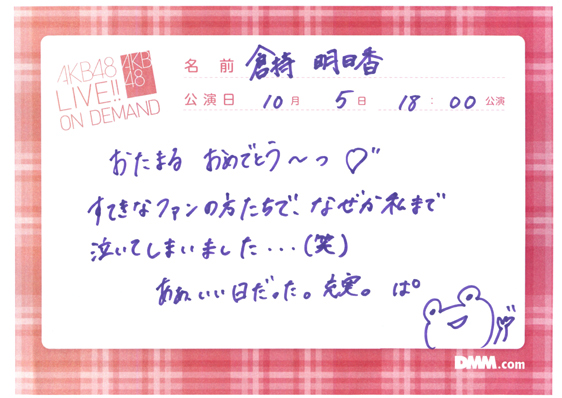 AKB48
LIVE!!
ON DEMAND
AKB
48
名前 倉持 明日香
公演日 10月 5日 18:00公演
おたまる おめでとう〜っ♡"
すてきなファンの方たちで、なぜか私まで
泣いてしまいました・・・(笑)
あぁ、いい日だった。充実。ぱ。
DMM.com